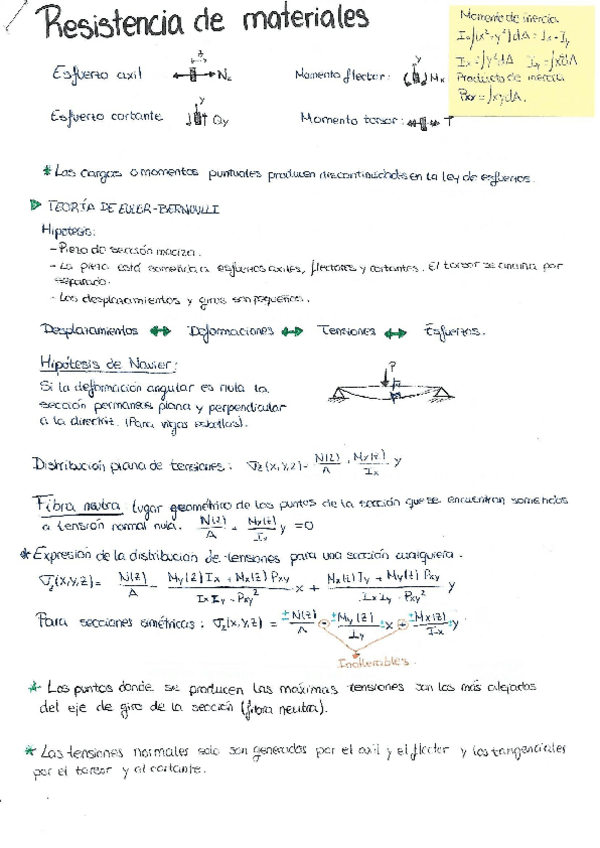 Resistencia de materiales
Momento de inercia
I₀∫(x²+y²)dA = Ix + Iy
Ix = ∫y²dA Iy = ∫x²dA
Producto de inercia
Pxy = ∫xydA.
Esfuerzo axil
z
Nz
Momento flector:
y
Mx
Esfuerzo cortante
y
Qy
Momento torsor:
T
* Las cargas o momentos puntuales producen discontinuidades en la ley de esfuerzos.
TEORÍA DE EULER-BERNOULLI
Hipótesis:
- Pieza de sección maciza.
- La pieza está sometida a esfuerzos axiles, flectores y cortantes. El torsor se por
separado.
- Los desplazamientos y giros son pequeños.
Desplazamientos ↔ Deformaciones ↔ Tensiones ↔ Esfuerzos.
Hipótesis de Navier:
P
Si la deformación angular es nula la
sección permanece plana y perpendicular
a la directriz. (Para vigas esbeltas).
Distribución plana de tensiones: σz(x,y,z) = N(z)/A + Mx(z)/Ix y
Fibra neutra: lugar geométrico de los puntos de la sección que se encuentran sometidos
a tensión normal nula. N(z)/A + Mx(z)/Ix y = 0
* Expresión de la distribución de tensiones para una sección cualquiera.
σz(x,y,z) = N(z)/A - My(z)Ix + Mx(z)Pxy/IxIy - Pxy² x + Mx(z)Iy + My(z)Pxy/IxIy - Pxy² y
Para secciones simétricas: σz(x,y,z) = ±N(z)/A - ±My(z)/Iy ±x + ±Mx(z)/Ix ±y
Inalterables.
* Los puntos donde se producen las máximas tensiones son los más alejados
del eje de giro de la sección (fibra neutra).
* Las tensiones normales solo son generadas por el axil y el flector y las tangenciales
por el torsor y el cortante.